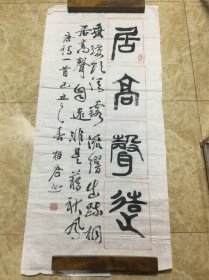 居高聲遠
垂緌飲清露流響出疏桐
居高聲自遠非是藉秋風
唐詩一首